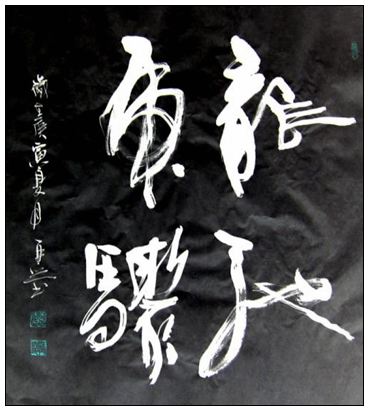 龍飛
虎驟
歲在庚寅夏月